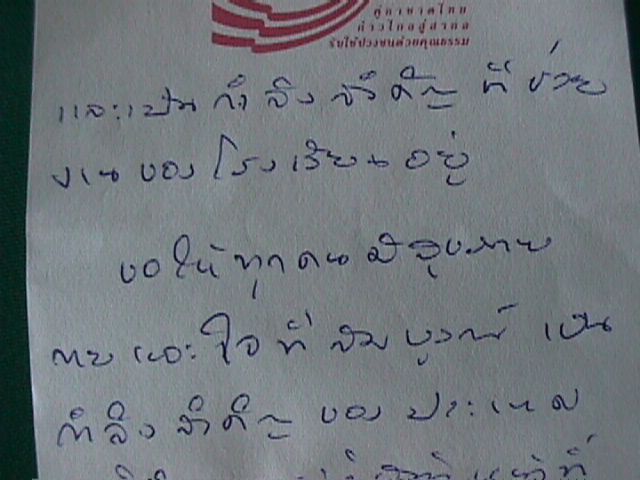 คู่กาชาดไทย
ก้าวไกลสู่สากล
รับใช้ปวงชนด้วยคุณธรรม
และเป็น กำลังสำคัญ ที่ ช่วย
งานของ โรงเรียนอยู่
ขอให้ทุกคนมีสุขภาพ
กายและใจที่สมบูรณ์ เป็น
กำลังสำคัญ ของ ประเทศ